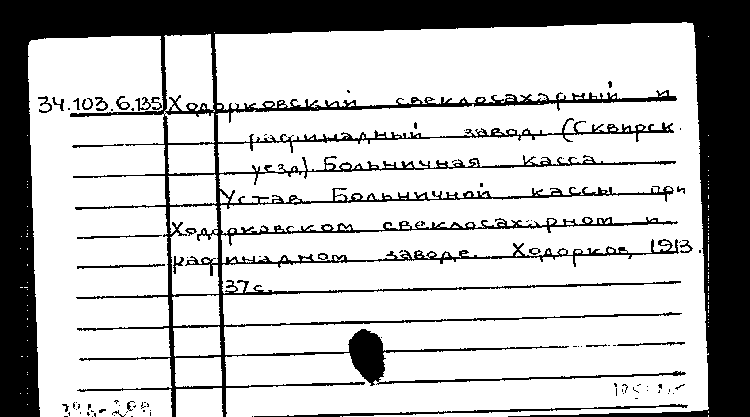 34.103.6.135 Ходорковский свеклосахарный и
рафинадный завод. (Сквирск.
уезд). Больничная касса.
Устав Больничной кассы при
Ходорковском свеклосахарном и
рафинадном заводе. Ходорков, 1913.
37с.